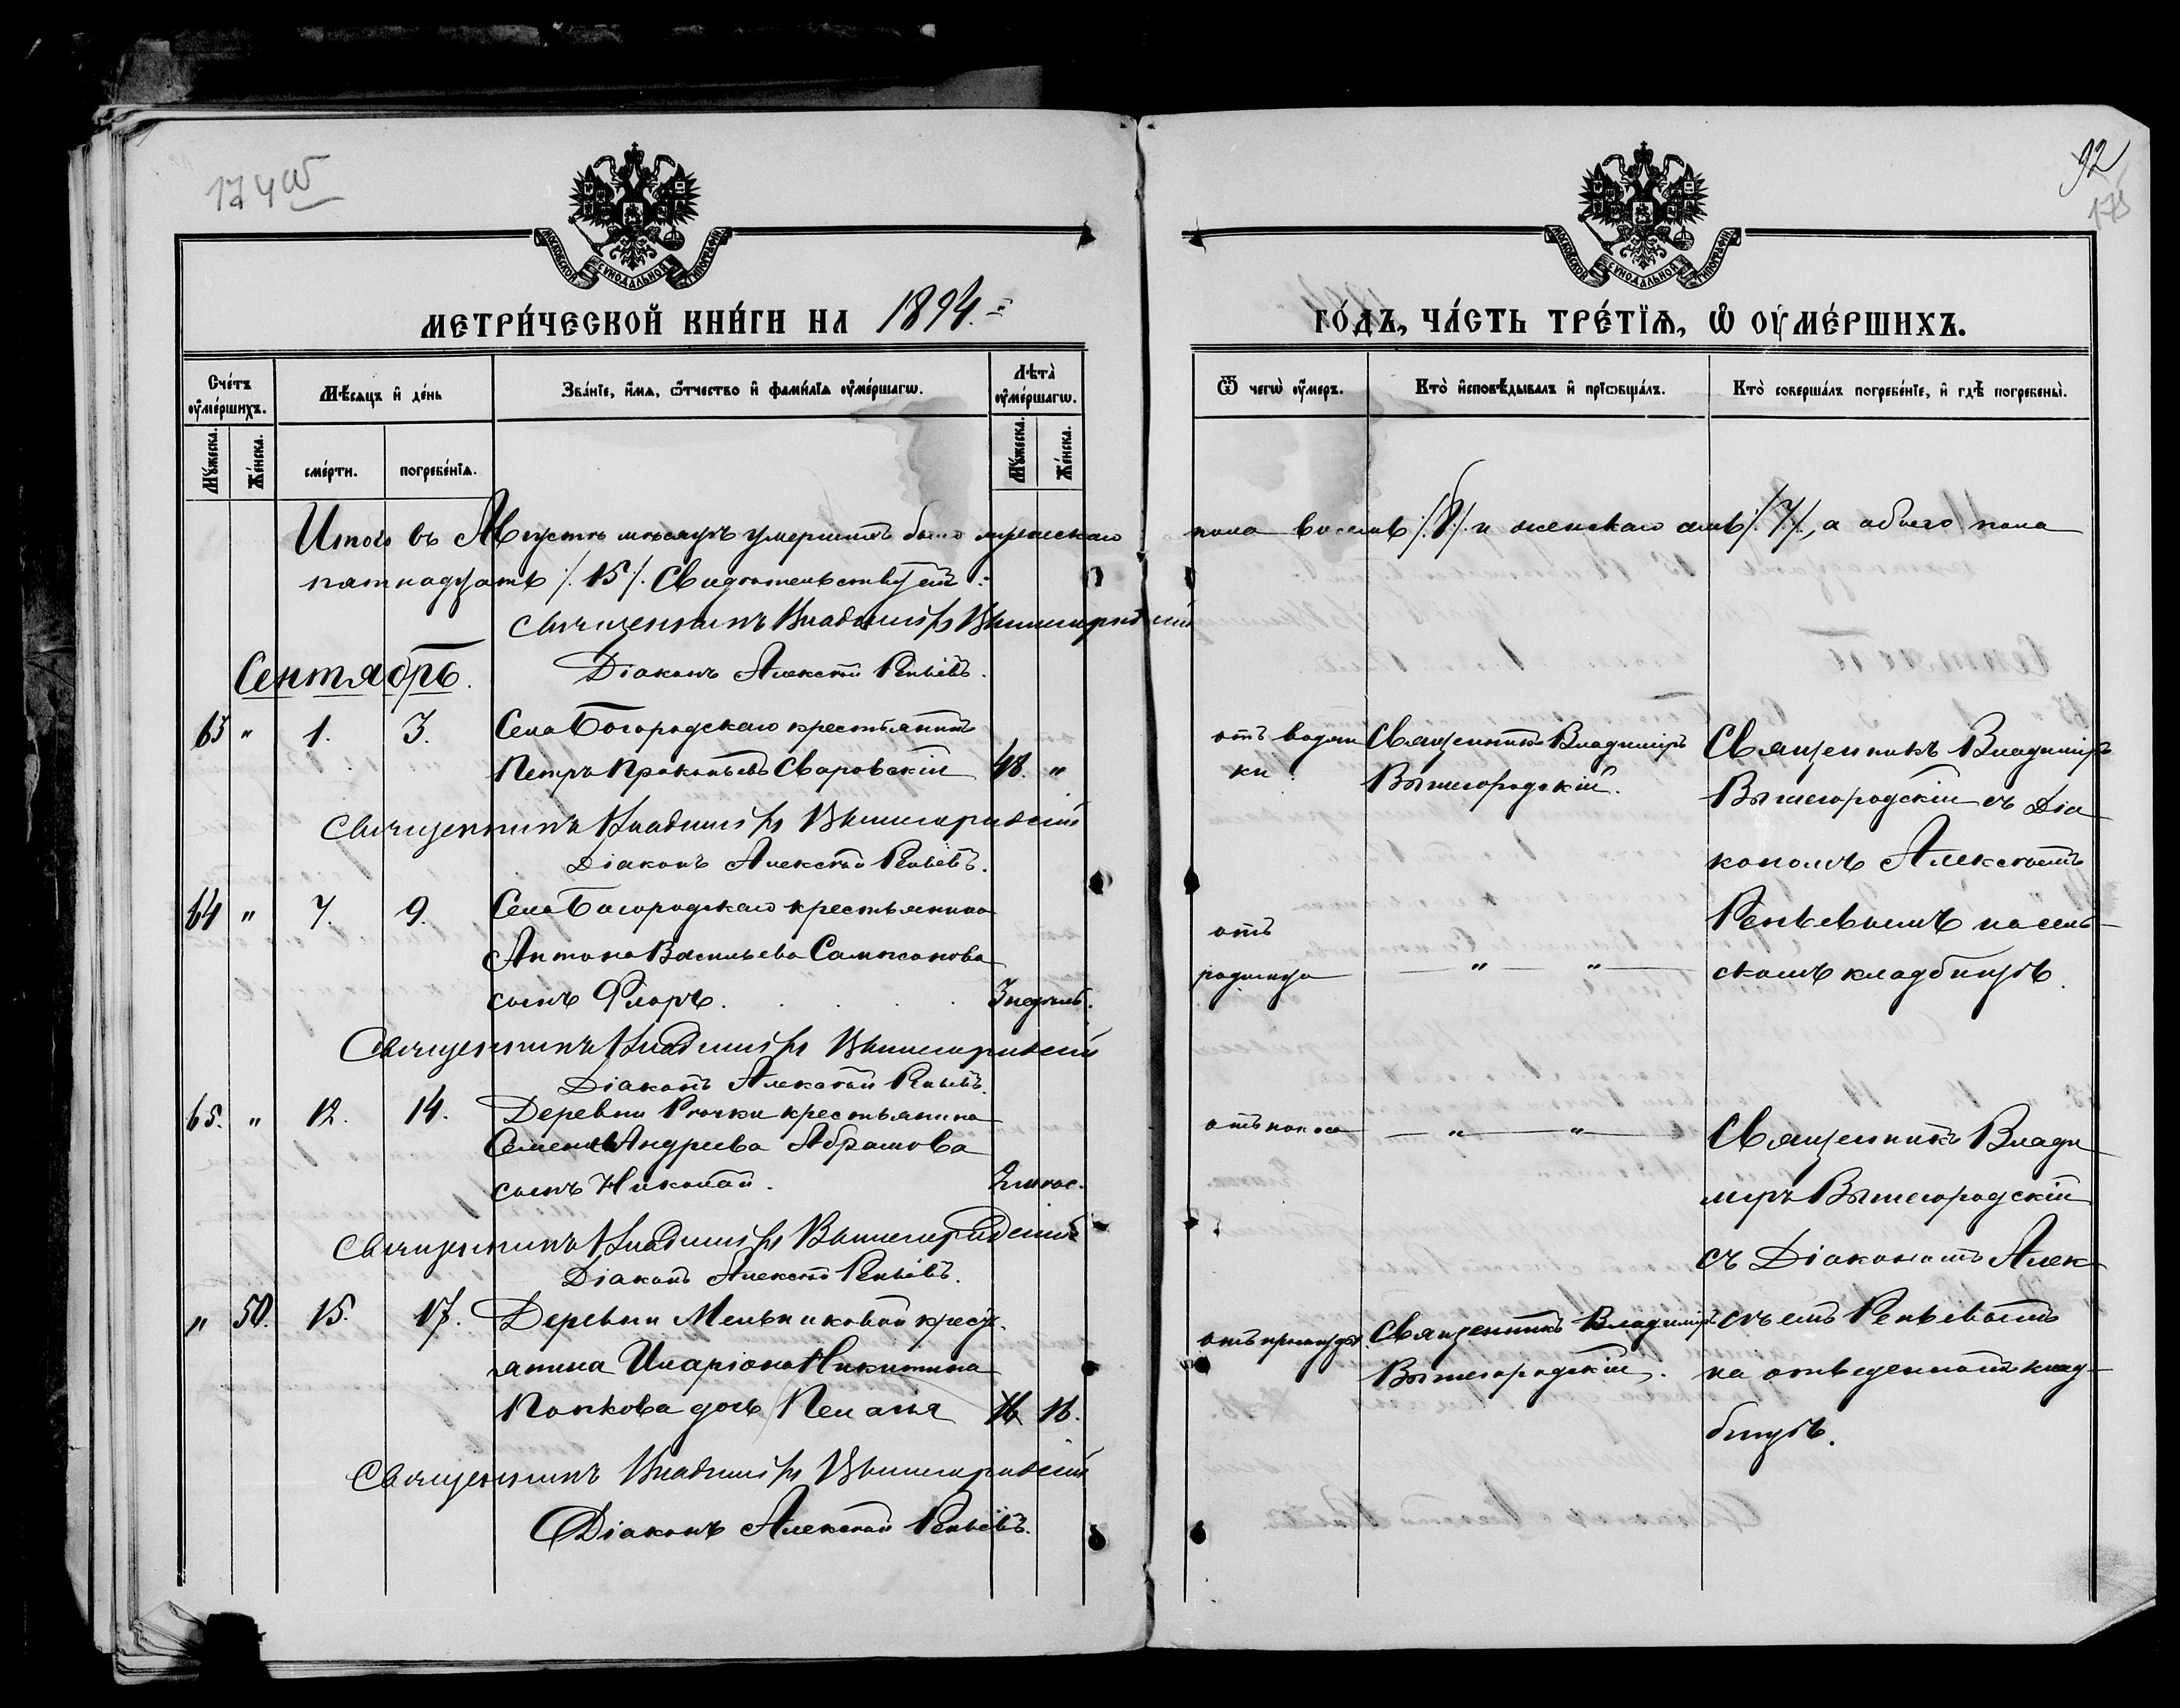 174 об
92
175
МОСКОВСКОЙ СУНОДАЛЬНОЙ ТИПОГРАФІИ
МОСКОВСКОЙ СУНОДАЛЬНОЙ ТИПОГРАФІИ
МЕТРИ́ЧЕСКОЙ КНИ́ГИ НА 1894.
ГО́ДЪ, ЧА́СТЬ ТРЕ́ТЇѦ, Ѡ ОУ҆МЕ́РШИХЪ.
Счетъ оумершихъ.
Мѣсяцъ и день
Званіе, имя, отчество и фамилія оумершагѡ.
Лѣта оумершагѡ.
Ѿ чегѡ оумеръ.
Кто исповѣдывалъ и пріобщалъ.
Кто совершалъ погребеніе, и гдѣ погребены.
Мужеска.
Женска.
смерти.
погребенія.
Мужеска.
Женска.
Итого въ Августѣ мѣсяцѣ умершихъ было мужескаго пола восемь /8/ и женскаго семь /7/, а обоего пола
пятнадцать /15/. Свидѣтельствуемъ:
Священникъ Владиміръ Вышегородскій
Сентябрь.
Діаконъ Алексѣй Репьевъ.
63 " 1. 3. Села Богородскаго крестьянинъ
Петръ Прокопьевъ Сваровскій 48. "
отъ водян
ки
Священникъ Владиміръ
Вышегородскій.
Священникъ Владиміръ
Вышегородскій съ Діа
кономъ Алексѣемъ
Репьевымъ на сель-
скомъ кладбищѣ.
Священникъ Владиміръ Вышегородскій
Діаконъ Алексѣй Репьевъ.
64 " 7. 9. Села Богородскаго крестьянина
Антона Васильева Самсонова
сынъ Флоръ. 3 недѣль.
отъ
родимца
" "
Священникъ Владиміръ Вышегородскій
Діаконъ Алексѣй Репьевъ.
65. " 12. 14. Деревни Рѣчки крестьянина
Семена Андреева Абрамова
сынъ Николай. 2 мѣс.
отъ поноса
" "
Священникъ Влади
міръ Вышегородскій
съ Діакономъ Алек
сѣемъ Репьевымъ
на отведенномъ клад-
бищѣ.
Священникъ Владиміръ Вышегородскій
Діаконъ Алексѣй Репьевъ.
" 50. 15. 17. Деревни Мельниковой крест.
янина Иларіона Никитина
Попкова дочь Пелагія 16 16.
отъ простуды
Священникъ Владиміръ
Вышегородскій.
Священникъ Владиміръ Вышегородскій
Діаконъ Алексѣй Репьевъ.